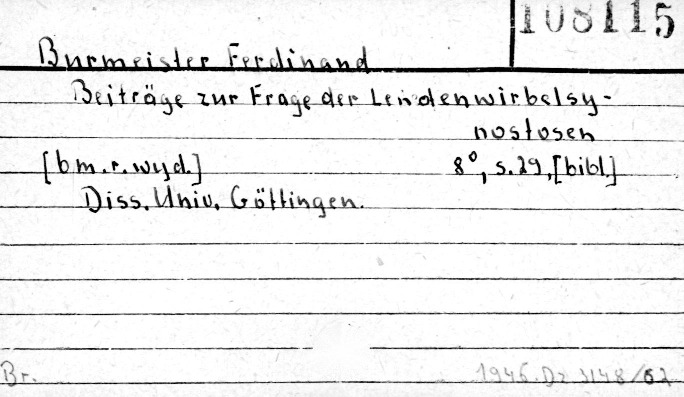 108115
Burmeister Ferdinand
Beiträge zur Frage der Lendenwirbelsy-
nostosen
[b m. r. wyd.] 8°, s. 29, [bibl.]
Diss. Univ. Göttingen.
Br. 1946. Dz 3148/62